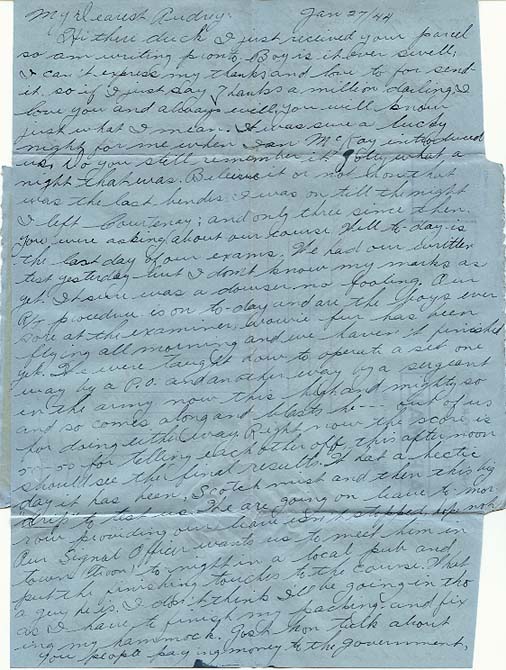 My Dearest Audrey. Jan 27/44
Hi there duck I just received your parcel
so am writing pronto. Boy is it ever swell;
I can't express my thanks and love to for send
it. so if I just say Thanks a million darling, I
love you and always will, you will know
just what I mean. It was sure a lucky
night for me when Ian McKay introduced
us. Do you still remember it? Golly what a
night that was. Believe it or not hon that
was the last bender I was on till the night
I left Courtenay; and only three since then.
You were asking about our course. Well to-day is
the last day of our exams. We had our written
test yesterday but I don't know my marks as
yet. It sure was a dowser no fooling. Our
R/T procedure is on to-day and are the boys ever
sore at the examiner. Wowie fur has been
flying all morning and we haven't finished
yet. I's were taught how to operate a set one
way by a P.O. and another way by a sergeant
in the army now this high and mighty so
and so comes along and blasts he--- out of us
for doing either way. Right now the score is
for telling each other off this afternoon
should see the final results. It had a hectic
day it has been, Scotch mist and then this big
drip to test us. We are going on leave to mor
row providing our leave isn't stopped,
Our Signal Officer wants us to meet him in
town Troon' to-night in a local pub and
put the finishing touches to the course. What
a guy he is. I don't think I'll be going in tho
as I have to finish my packing and fix
ing my hammock. Gosh hon talk about
you people paying money to the government,